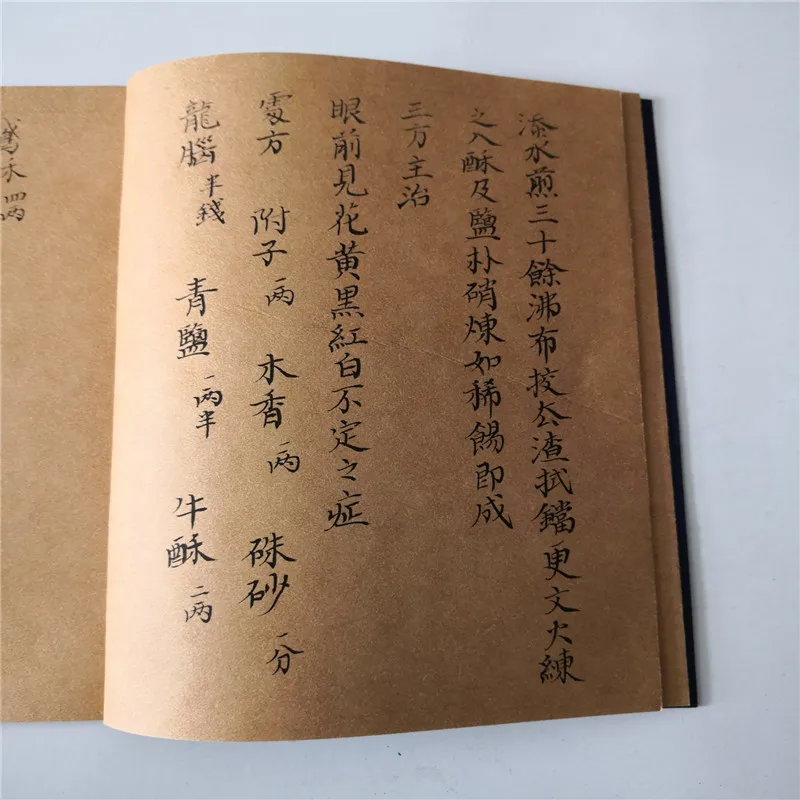 添水煎三十餘沸布挍去渣拭鐺更文火練
之入酥及鹽朴硝煉如稀餳即成
三方主治
眼前見花黄黑紅白不定之症
處方 附子一两 木香一两 硃砂一分
龍腦半錢 青鹽一两半 牛酥二两
鵞禾四两